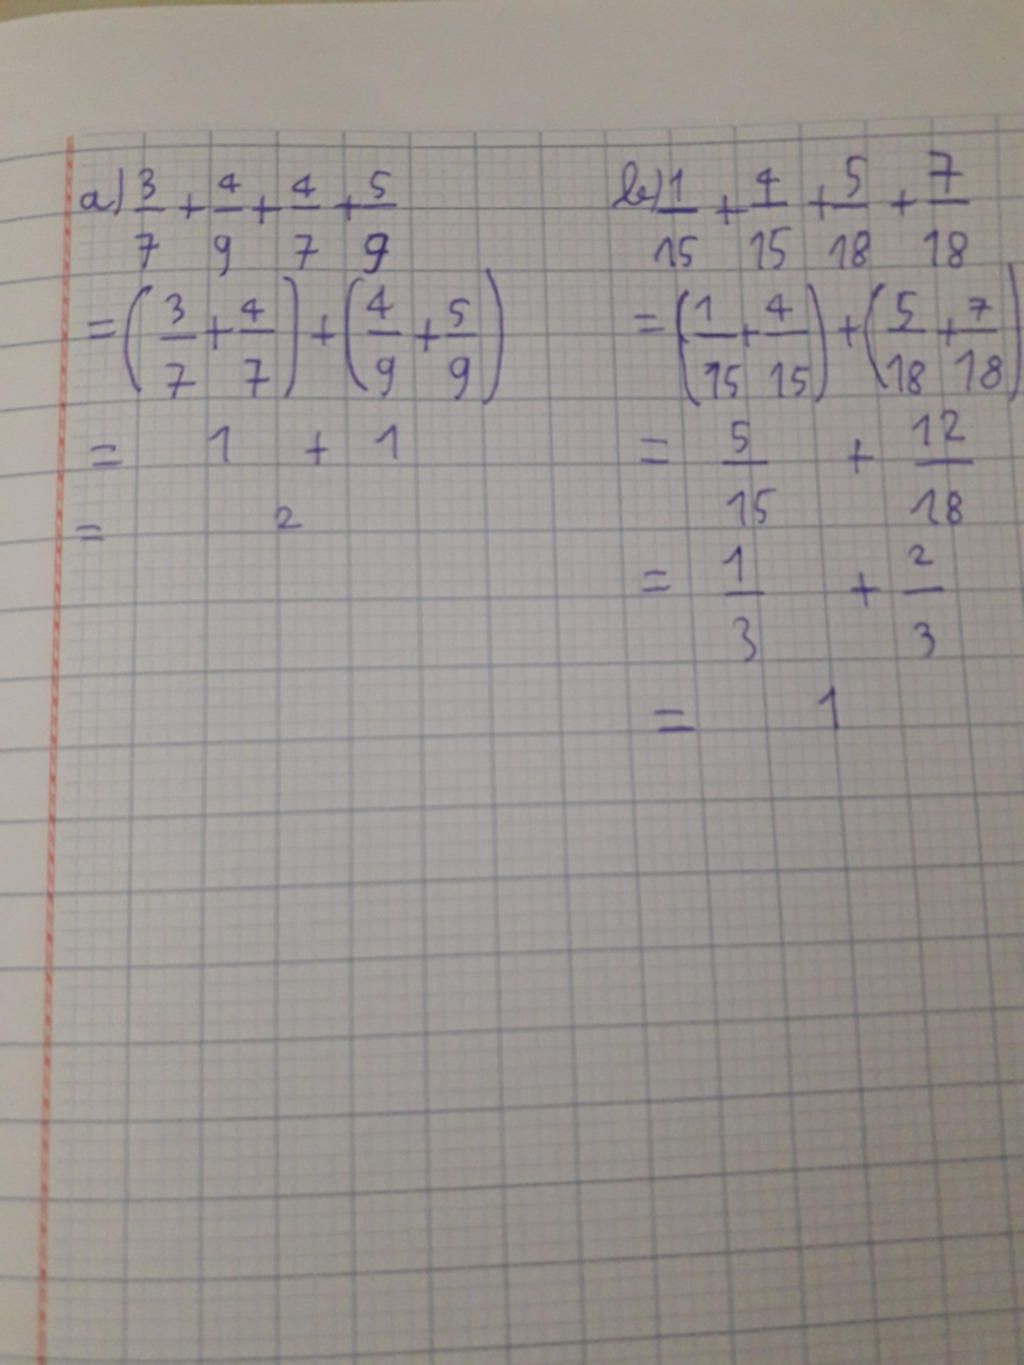 a) 3/7 + 4/9 + 4/7 + 5/9
= (3/7 + 4/7) + (4/9 + 5/9)
= 1 + 1
= 2
b) 1/15 + 4/15 + 5/18 + 7/18
= (1/15 + 4/15) + (5/18 + 7/18)
= 5/15 + 12/18
= 1/3 + 2/3
= 1